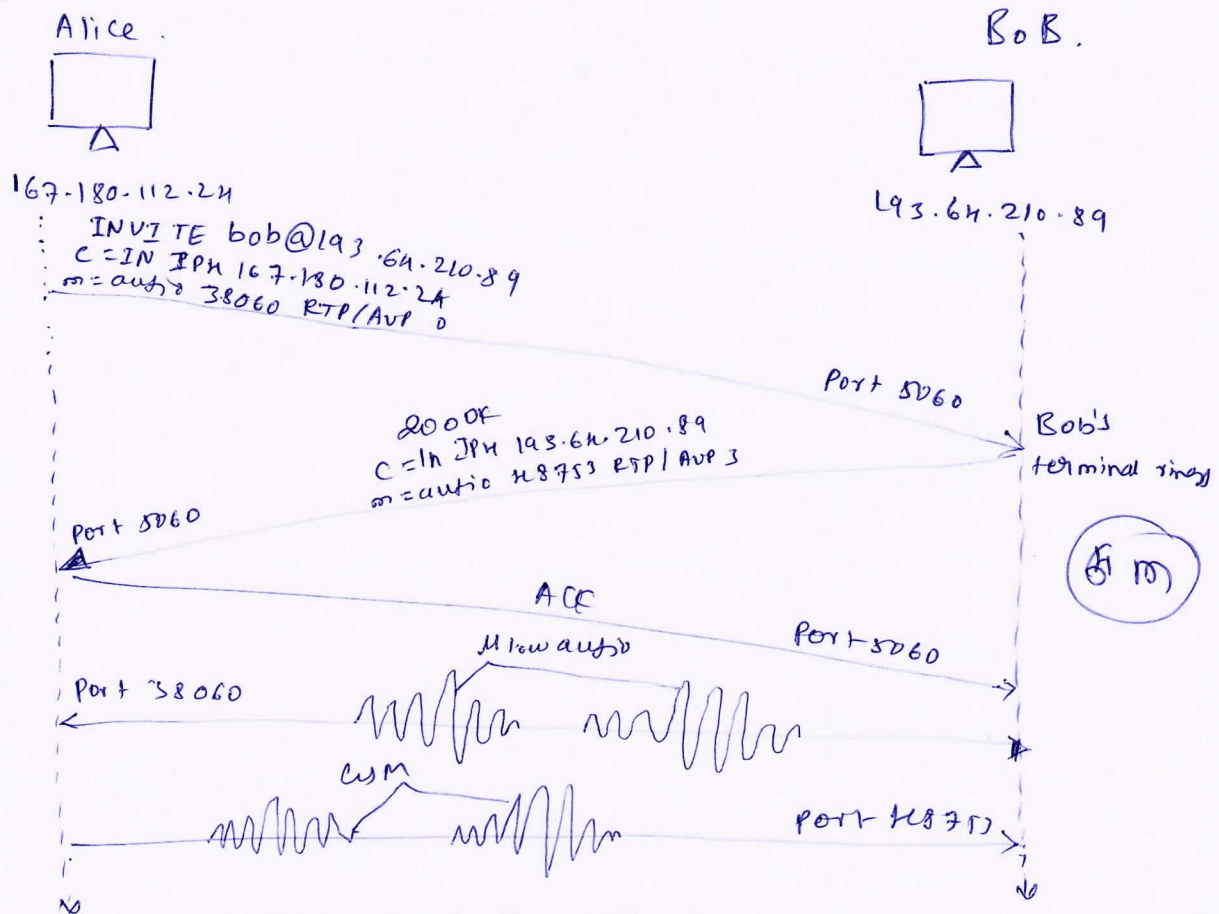 Alice.
BoB.
167.180.112.24
193.64.210.89
INVITE bob@193.64.210.89
C=IN IP4 167.180.112.24
m=audio 38060 RTP/AVP 0
Port 5060
Bob's
terminal rings
200OK
C=In IP4 193.64.210.89
m=audio 48753 RTP/AVP 3
Port 5060
ACK
Port 5060
µ law audio
Port 38060
GSM
Port 48753